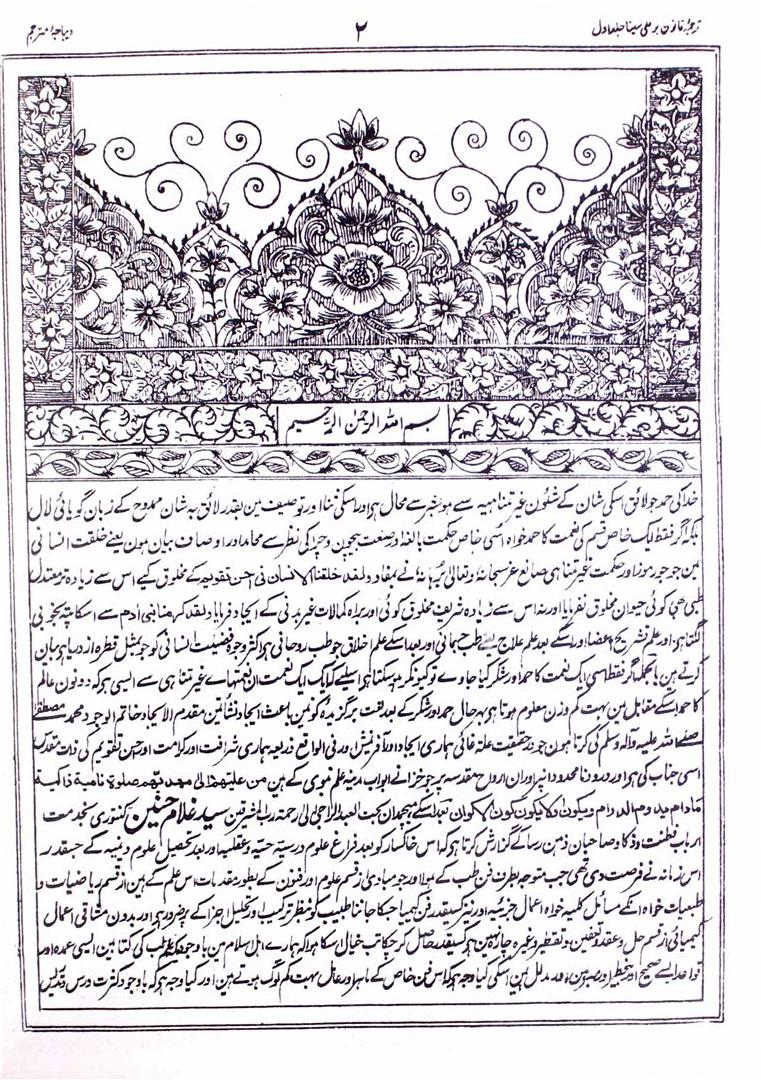 ترجمۂ قانون بو علی سینا جلد اول
۲
دیباچۂ مترجم
بسم اللہ الرحمن الرحیم
خدا کی حمد جو لائق اسکی شان کے شئون غیر متناہیہ سے ہو بشر سے محال ہی اور اسکی ثنا اور توصیف میں بقدر لائق بہ شان ممدوح کے زبان گویائی لال
بلکہ اگر فقط ایک خاص قسم کی نعمت کا حمد خواہ اسی خاص حکمت بالغہ اور صنعت بیچون و چرا کی نظر سے محامد اور اوصاف بیان ہون یعنے خلقت انسانی
مین جو جو رموز اور حکمت غیر متناہی صانع عز سبحانہ و تعالی برہانہ نے بمفاد ولقد خلقنا الانسان فی احسن تقویم کے مخلوق کیے اس سے زیادہ تر معتدل
طبعی کوئی حیوان مخلوق نفرمایا اور نہ اس سے زیادہ شریف مخلوق کوئی اور براہ کمالات غیر بدنی کے ایجاد فرمایا ولقد کرمنا بنی آدم سے اسکا پتہ بخوبی
لگتا ہی اور علم تشریح اعضا اور اسکے بعد علم علاج یعنے طب جسمانی اور بعد اسکے علم اخلاق جو طب روحانی ہی اکثر وجوہ فضیلت انسانی کو جو مثل قطرہ از دریا ہی بیان
کرتے ہین بالجملہ اگر فقط اسی ایک نعمت کا حمد اور شکر کیا جاوے تو کیونکر ہو سکتا ہی اسلیے کہ ایک ایک نعمت ان نعمتہاے غیر متناہی سے ایسی ہی کہ دونون عالم
کا حمد اسکے مقابل مین بہت کم وزن معلوم ہوتا ہی بہر حال حمد اور شکر کے بعد نعت برگزیدہ کونین باعث ایجاد نشأتین مقدم الایجاد خاتم الوجود محمد مصطفے
صلے اللہ علیہ وآلہ وسلم کی کرتا ہون جو در حقیقت علۃ غائی ہماری ایجاد اور آفرینش اور فی الواقع ذریعہ ہماری شرافت اور کرامت اور حسن تقویم کی ذات مقدس
اسی جناب کی ہی اور درود نامحدود انپر اور ان ارواح مقدسہ پر جو خزانے ابواب مدینہ علم نبوی کے ہین من علیہذا الی مہدیہم صلوۃ نامیۃ ذاکیۃ
مادام یدوم الدوام ویکون ولایکون کون الاکوان بعد اسکے ہیچمدان العبد الراجی الی رحمۃ رب المشرقین سید غلام حسنین کنتوری بخدمت
ارباب فطنت و ذکا و صاحبان ذہن رسا کے گزارش کرتا ہی کہ اس خاکسار کو بعد فراغ علوم درسیہ حسیہ و عقلیہ اور بعد تحصیل علوم دینیہ کے جسقدر
اس زمانہ نے فرصت دی تھی جب متوجہ بطرف فن طب کے ہوا اور جو مبادی از قسم علوم اور فنون کے بطور مقدمات اس علم کے ہین از قسم ریاضیات و
طبعیات خواہ انکے مسائل کلیہ خواہ اعمال جزئیہ اور نیز کسیقدر فن کیمیا جسکا جاننا طبیب کو بنظر ترکیب اور تحلیل اجزا کے پر ضرور ہی اور بدون مشاقی اعمال
کیمیائی از قسم حل و عقد و تعفین و تقطیر وغیرہ چارہ نہین ہی کسیقدر حاصل کر چکا تب خیال سکا ہوا کہ ہمارے اہل اسلام مین باوجودیکہ طب کی کتابین ایسی عمدہ اور
قواعد ایسے صحیح اور مدلل ہین اسکی کیا وجہ ہی کہ اس فن خاص کے ماہر اور عامل بہت کم لوگ ہوتے ہین اور کیا وجہ ہی کہ باوجود کثرت درس و تدریس